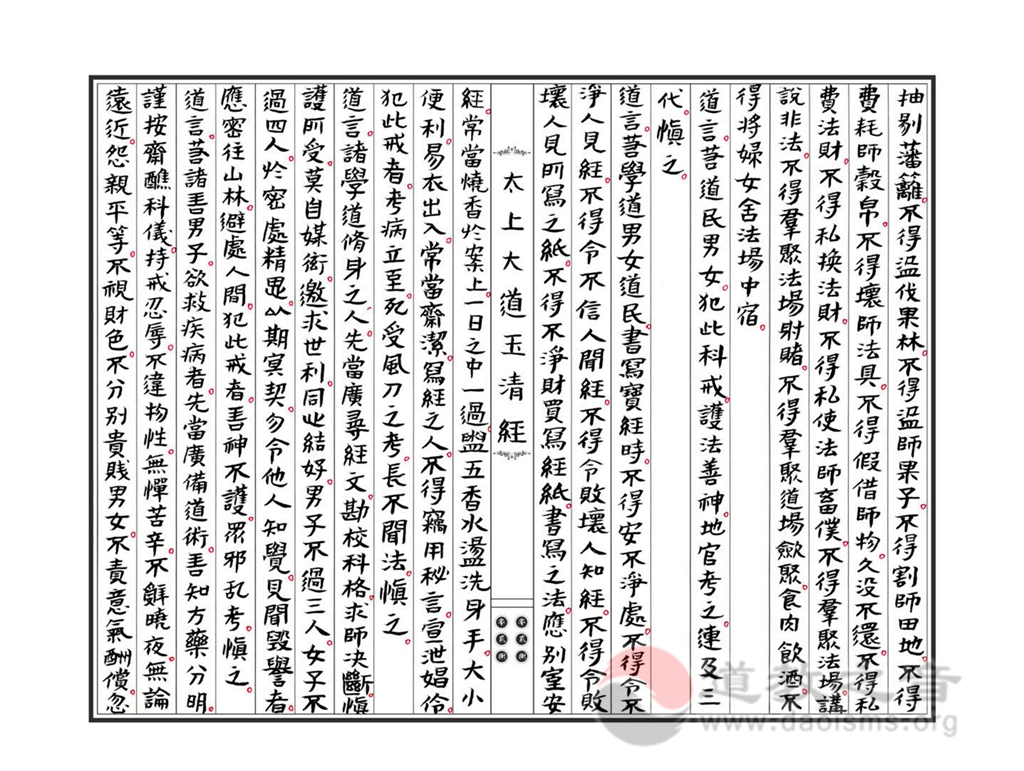 抽剔藩籬不得盜伐果林不得盜師果子不得割師田地不得
費耗師穀帛不得壞師法具不得假借師物久没不還不得私
費法財不得私換法財不得私使法師畜僕不得羣聚法場講
說非法不得羣聚法場射賭不得羣聚道場歛聚食肉飲酒不
得將婦女舍法場中宿
道言荅道民男女犯此科戒護法善神地官考之連及三
代慎之
道言荅學道男女道民書寫寶經時不得安不淨處不得令不
淨人見經不得令不信人聞經不得令敗壞人知經不得令敗
壞人見所寫之紙不得不淨財買寫經紙書寫之法應别室安
太上大道玉清經
零贰
零贰
經常當燒香於案上一日之中一過盥五香水盪洗身手大小
便利易衣出入常當齋潔寫經之人不得竊用秘言宣泄娼伶
犯此戒者考病立至死受風刀之考長不聞法慎之
道言諸學道脩身之人先當廣尋經文勘校科格求師决斷慎
護所受莫自媒衒邀求世利同㞢結好男子不過三人女子不
過四人於密處精思以期冥契勿令他人知覺見聞毀譽者
應密往山林避處人間犯此戒者善神不護眾邪乱考慎之
道言荅諸善男子欲救疾病者先當廣備道術善知方藥分明
謹按齋醮科儀持戒忍辱不違物性無憚苦辛不辭曉夜無論
遠近怨親平等不視財色不分别貴賤男女不責意氣酬償忽
道教之音
www.daoisms.org